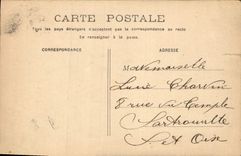 CARTE POSTALE
Tous les pays étrangers n'acceptent pas la correspondance au recto
Se renseigner à la poste
CORRESPONDANCE
ADRESSE
Mademoiselle
Charvin
8 rue du Temple
Sartrouville
S et Oise